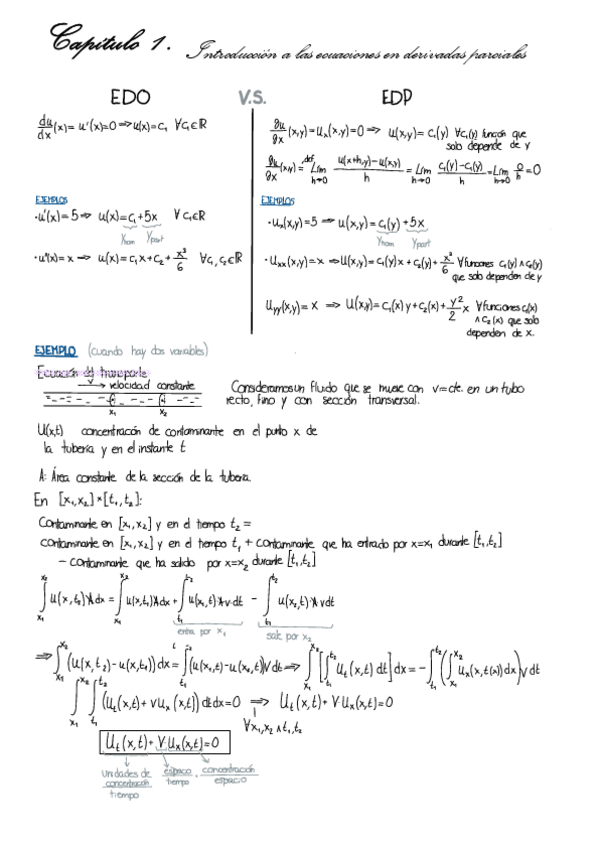 Capitulo 1. Introducción a las ecuaciones en derivadas parciales
EDO V.S. EDP
du/dx (x) = u'(x)=0 ⇒ u(x)=c₁ ∀c₁∈ℝ
∂u/∂x (x,y)=Uₓ(x,y)=0 ⇒ u(x,y)= c₁(y) ∀c₁(y) función que
solo depende de y
∂u/∂x (x,y) =def. Lím h→0 (u(x+h,y)-u(x,y))/h = Lím h→0 (c₁(y)-c₁(y))/h = Lím h→0 0/h = 0
EJEMPLOS
·u'(x)=5 ⇒ u(x)=c₁+5x ∀c₁∈ℝ
yhom ypart
·u''(x)=x ⇒ u(x)=c₁x+c₂+x³/6 ∀c₁,c₂∈ℝ
EJEMPLOS
·Uₓ(x,y)=5 ⇒ u(x,y)=c₁(y)+5x
yhom ypart
·Uₓₓ(x,y)=x ⇒ u(x,y)=c₁(y)x+c₂(y)+x³/6 ∀funciones c₁(y) ∧ c₂(y)
que solo dependen de y
Uyy(x,y)=x ⇒ U(x,y)=c₁(x)y+c₂(x)+y²/2 x ∀funciones c₁(x)
∧ c₂(x) que solo
dependen de x.
EJEMPLO (cuando hay dos variables)
Ecuación del transporte
v → velocidad constante
x₁ x₂
Consideramos un fluido que se mueve con v=cte. en un tubo
recto, fino y con sección transversal.
U(x,t) concentración de contaminante en el punto x de
la tubería y en el instante t
A: Área constante de la sección de la tubería.
En [x₁,x₂]×[t₁,t₂]:
Contaminante en [x₁,x₂] y en el tiempo t₂ =
contaminante en [x₁,x₂] y en el tiempo t₁ + contaminante que ha entrado por x=x₁ durante [t₁,t₂]
- contaminante que ha salido por x=x₂ durante [t₁,t₂]
∫x₁^x₂ u(x,t₂)A dx = ∫x₁^x₂ u(x,t₁)A dx + ∫t₁^t₂ u(x₁,t)A v dt - ∫t₁^t₂ u(x₂,t)A v dt
entra por x₁ sale por x₂
⇒ ∫x₁^x₂ (u(x,t₂)-u(x,t₁))dx = ∫(u(x₁,t)-u(x₂,t))v dt ⇒ ∫x₁^x₂ [∫t₁^t₂ Uₜ(x,t) dt] dx = -∫t₁^t₂ (∫x₁^x₂ uₓ(x,t)dx) v dt
∫x₁^x₂ ∫t₁^t₂ (Uₜ(x,t)+v uₓ(x,t)) dt dx=0 ⇒ Uₜ(x,t)+ v·uₓ(x,t)=0
∀x₁,x₂ ∧ t₁,t₂
Uₜ(x,t)+ V·Uₓ(x,t)=0
Unidades de concentración/tiempo espacio/tiempo · concentración/espacio